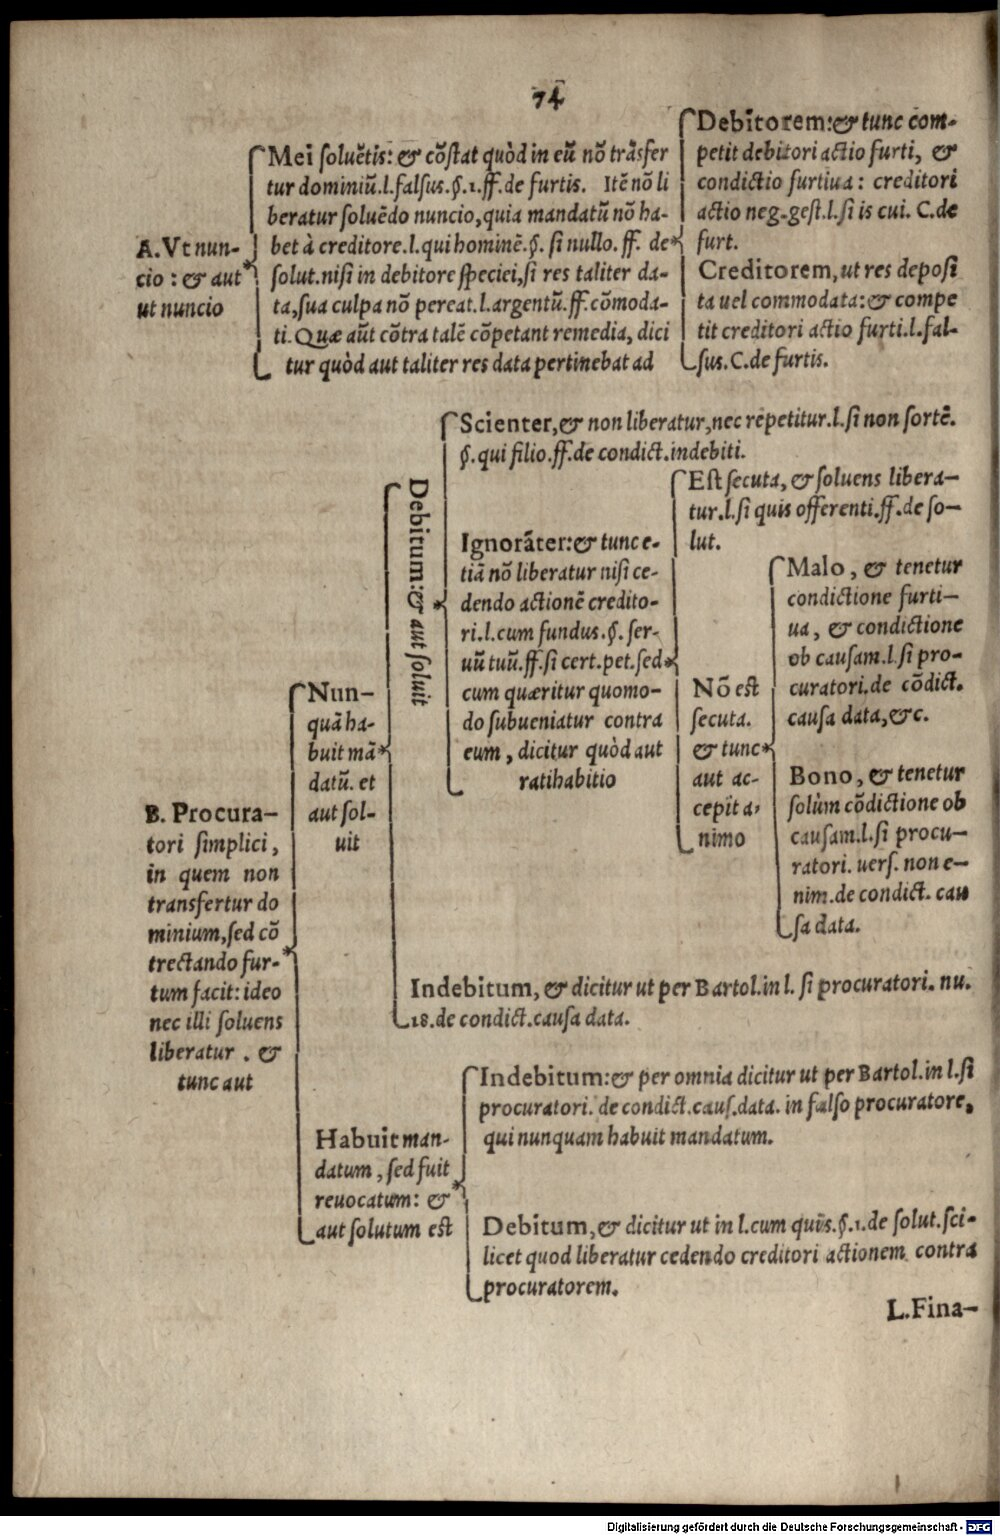 74
A. Vt nun-
cio : & aut
ut nuncio
Mei soluẽtis: & cõstat quòd in eũ nõ trãsfer
tur dominiũ.l.falsus.§.1.ff.de furtis. Itẽ nõ li
beratur soluẽdo nuncio, quia mandatũ nõ ha-
bet à creditore.l.qui hominẽ.§. si nullo. ff. de
solut.nisi in debitore speciei,si res taliter da-
ta,sua culpa nõ pereat.l.argentũ.ff.cõmoda-
ti. Quæ aũt cõtra talẽ cõpetant remedia, dici
tur quòd aut taliter res data pertinebat ad
Debitorem:& tunc com-
petit debitori actio furti, &
condictio furtiua : creditori
actio neg.gest.l.si is cui. C.de
furt.
Creditorem, ut res deposi
ta uel commodata:& compe
tit creditori actio furti.l.fal-
sus.C.de furtis.
B. Procura-
tori simplici,
in quem non
transfertur do
minium,sed cõ
trectando fur-
tum facit: ideo
nec illi soluens
liberatur . &
tunc aut
Nun-
quã ha-
buit mã
datũ. et
aut sol-
uit
Debitum:& aut soluit
Scienter,& non liberatur,nec repetitur.l.si non sortẽ.
§.qui filio.ff.de condict.indebiti.
Ignorãter:& tunc e-
tiã nõ liberatur nisi ce-
dendo actionẽ credito-
ri.l.cum fundus.§.ser-
uũ tuũ.ff.si cert.pet.sed
cum quæritur quomo-
do subueniatur contra
eum , dicitur quòd aut
ratihabitio
Est secuta, & soluens libera-
tur.l.si quis offerenti.ff.de so-
lut.
Nõ est
secuta.
& tunc
aut ac-
cepit a-
nimo
Malo , & tenetur
condictione furti-
ua , & condictione
ob causam.l.si pro-
curatori.de cõdict.
causa data,&c.
Bono , & tenetur
solùm cõdictione ob
causam.l.si procu-
ratori. uers. non e-
nim.de condict. cau
sa data.
Indebitum, & dicitur ut per Bartol.in l. si procuratori. nu.
18.de condict.causa data.
Habuit man-
datum , sed fuit
reuocatum: &
aut solutum est
Indebitum:& per omnia dicitur ut per Bartol.in l.si
procuratori. de condict.caus.data. in falso procuratore,
qui nunquam habuit mandatum.
Debitum,& dicitur ut in l.cum quis.§.1.de solut.sci-
licet quod liberatur cedendo creditori actionem contra
procuratorem.
L.Fina-
Digitalisierung gefördert durch die Deutsche Forschungsgemeinschaft - DFG